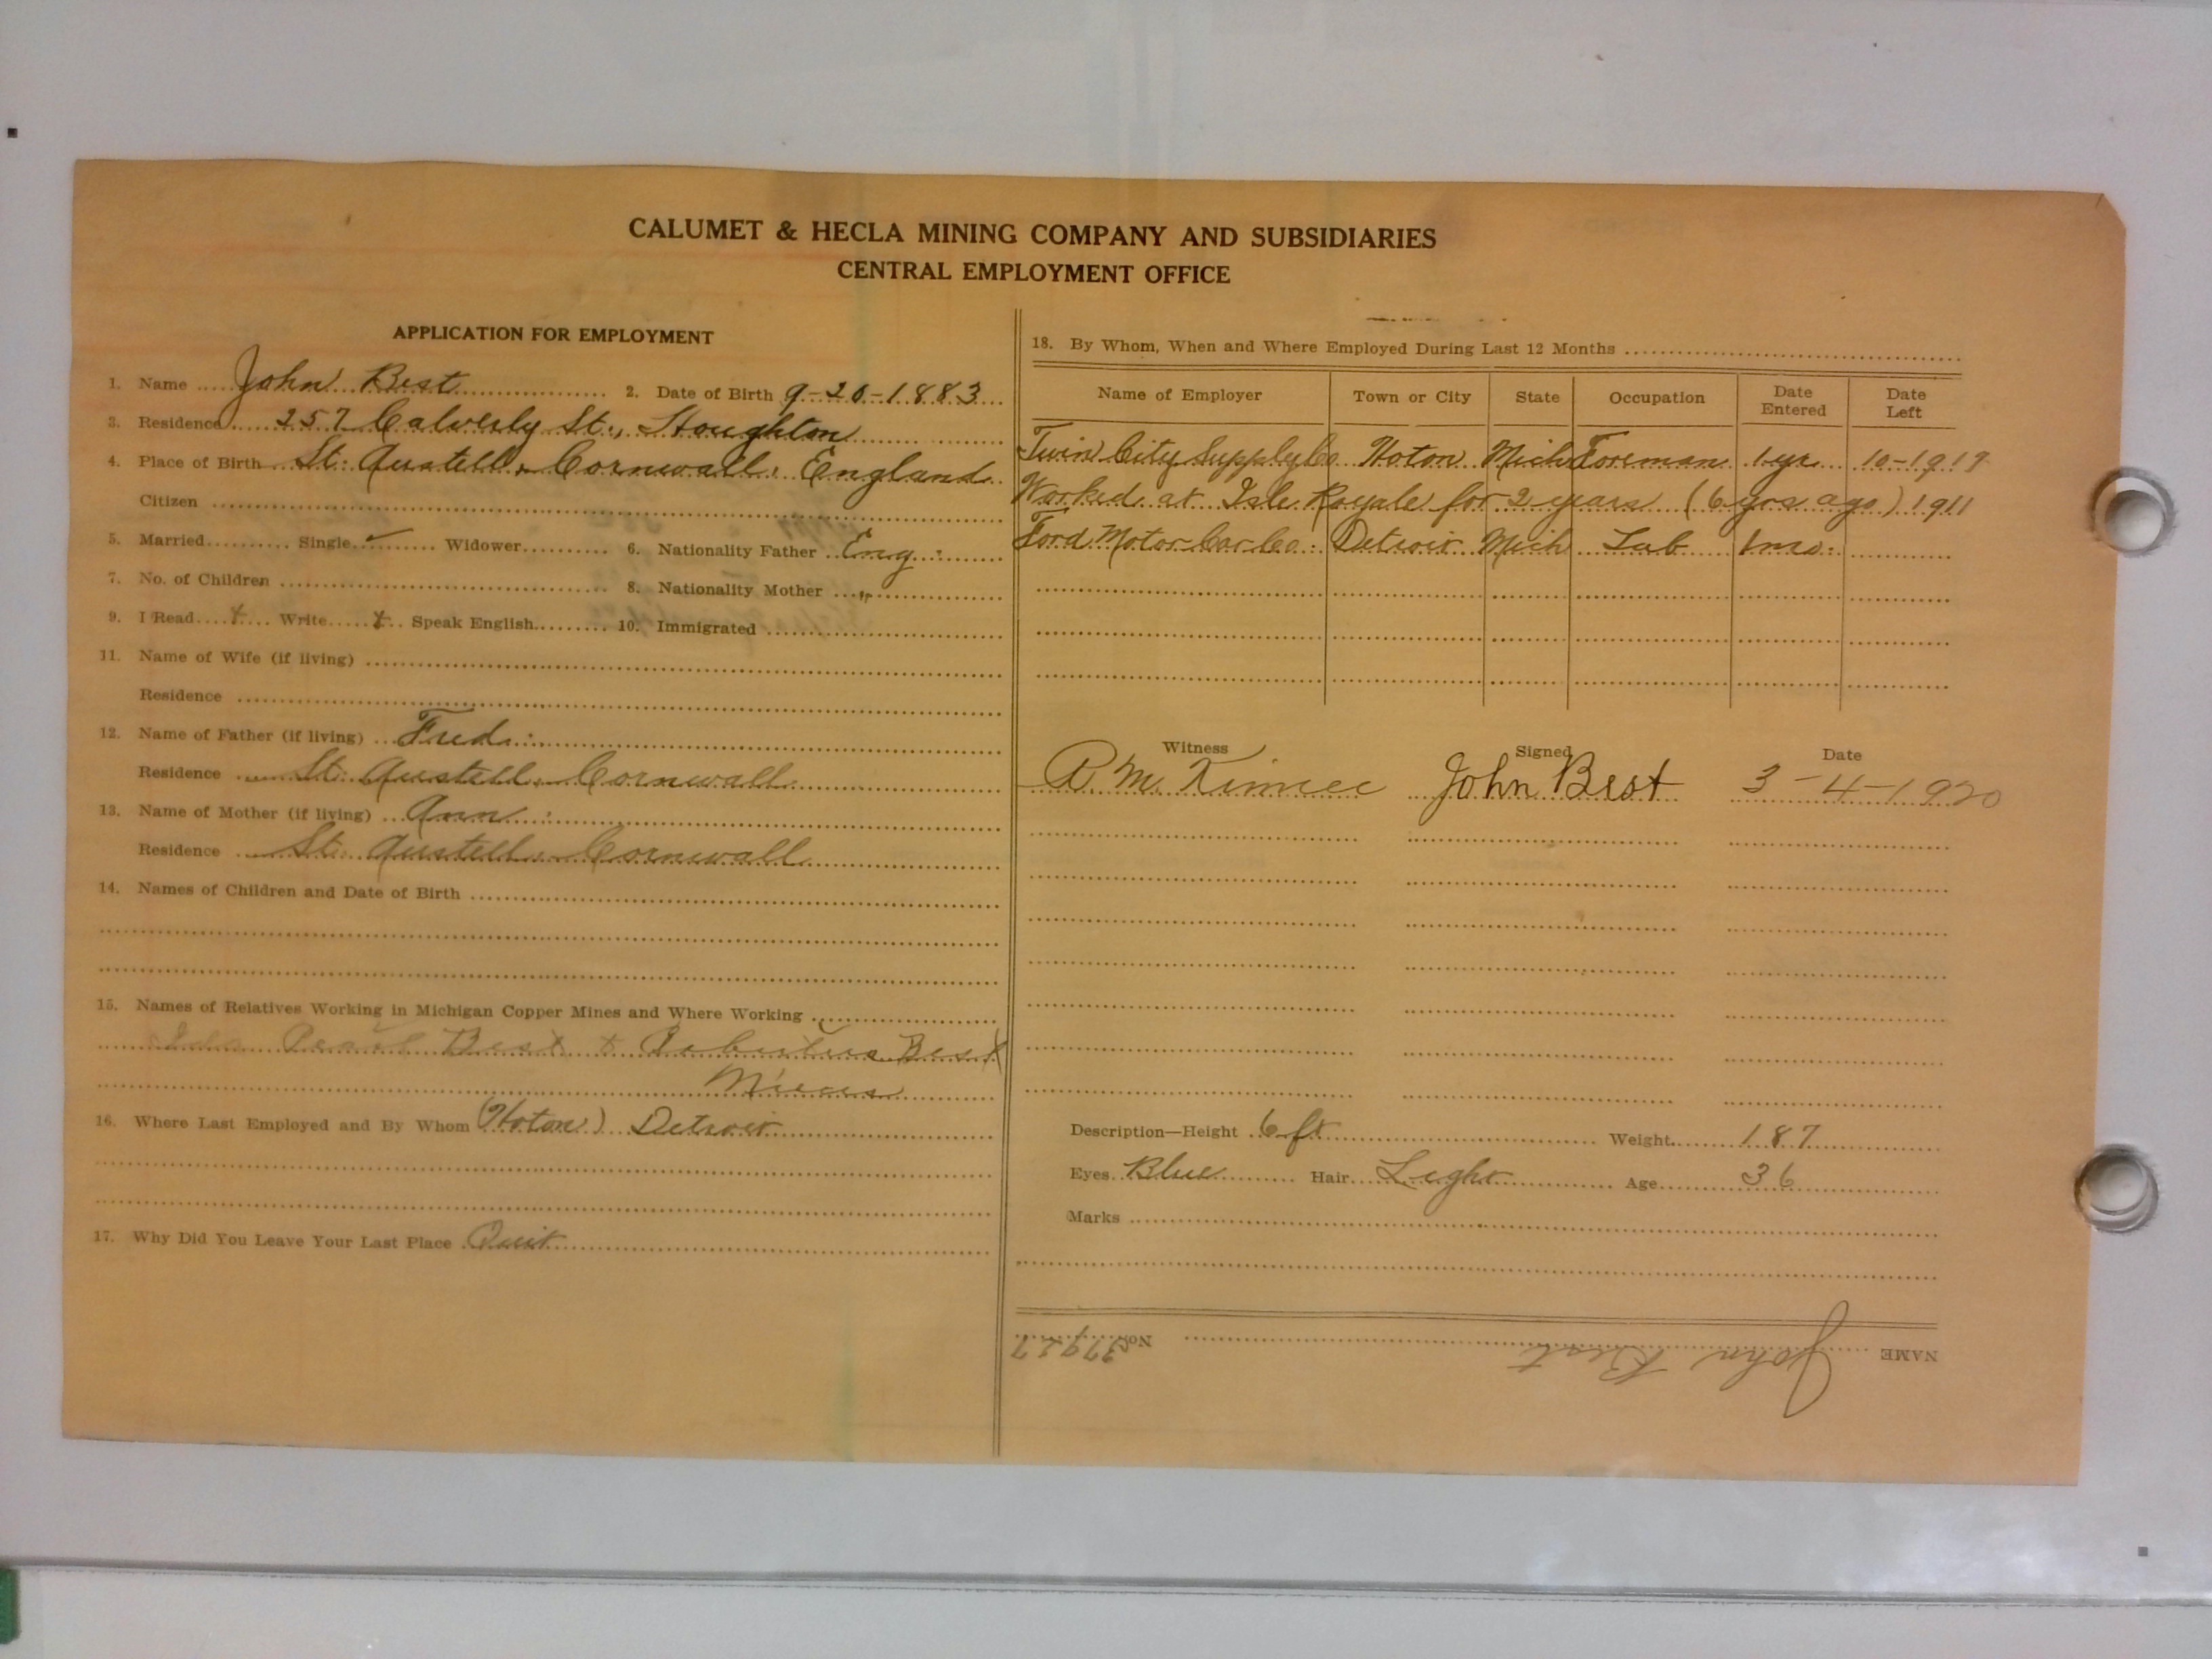 CALUMET & HECLA MINING COMPANY AND SUBSIDIARIES
CENTRAL EMPLOYMENT OFFICE
APPLICATION FOR EMPLOYMENT
1. Name John Best 2. Date of Birth 9-20-1883
3. Residence 257 Calverly St., Houghton
4. Place of Birth St. Austell, Cornwall, England
Citizen
5. Married Single ✓ Widower 6. Nationality Father Eng.
7. No. of Children 8. Nationality Mother "
9. I Read x Write x Speak English 10. Immigrated
11. Name of Wife (if living)
Residence
12. Name of Father (if living) Fred
Residence St. Austell, Cornwall
13. Name of Mother (if living) Ann
Residence St. Austell, Cornwall
14. Names of Children and Date of Birth
15. Names of Relatives Working in Michigan Copper Mines and Where Working
Best + Best
16. Where Last Employed and By Whom (Hoton) Detroit
17. Why Did You Leave Your Last Place Quit
18. By Whom, When and Where Employed During Last 12 Months
Name of Employer Town or City State Occupation Date Entered Date Left
Twin City Supply Co Hoton Mich Foreman 1 yr. 10-1919
Worked at Isle Royale for 2 years (6 yrs ago) 1911
Ford Motor Car Co. Detroit Mich Lab 1 mo.
Witness Signed Date
John Best 3-4-1920
Description—Height 6 ft Weight 187
Eyes Blue Hair Light Age 36
Marks
NAME John Best No. 37927